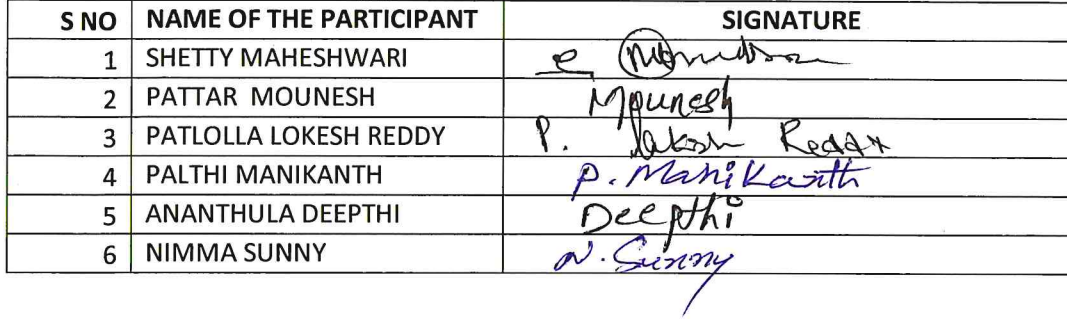 S NO NAME OF THE PARTICIPANT SIGNATURE
1 SHETTY MAHESHWARI
2 PATTAR MOUNESH Mounesh
3 PATLOLLA LOKESH REDDY P. Lokesh Reddy
4 PALTHI MANIKANTH P. Manikanth
5 ANANTHULA DEEPTHI Deepthi
6 NIMMA SUNNY N. Sunny